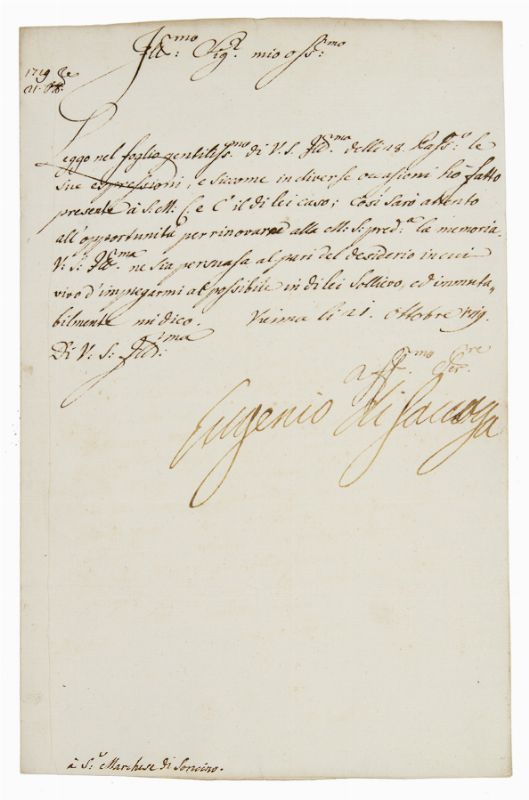 Ill:mo Sig:r mio oss:mo
1719
21. 8bre
Leggo nel foglio gentiliss:mo di V. S. Ill:ma delli 18 Pass:o le
sue espressioni, e siccome in diverse occasioni hò fatto
presente à S. M: C, e C:a il di lei caso; Così sarò attento
all'opportunità per rinovarne alla M: S: pred:a la memoria.
V: S: Ill:ma ne sia persuasa al pari del desiderio in cui
vivo d'impiegarmi al possibile in di lei sollievo, ed immuta„
bilmente mi dico. Vienna li 21. Ottobre 1719.
Di V: S: Ill:ma
Aff:mo Ser:re
Eugenio di Savoya
à S:r Marchese di Soncino.